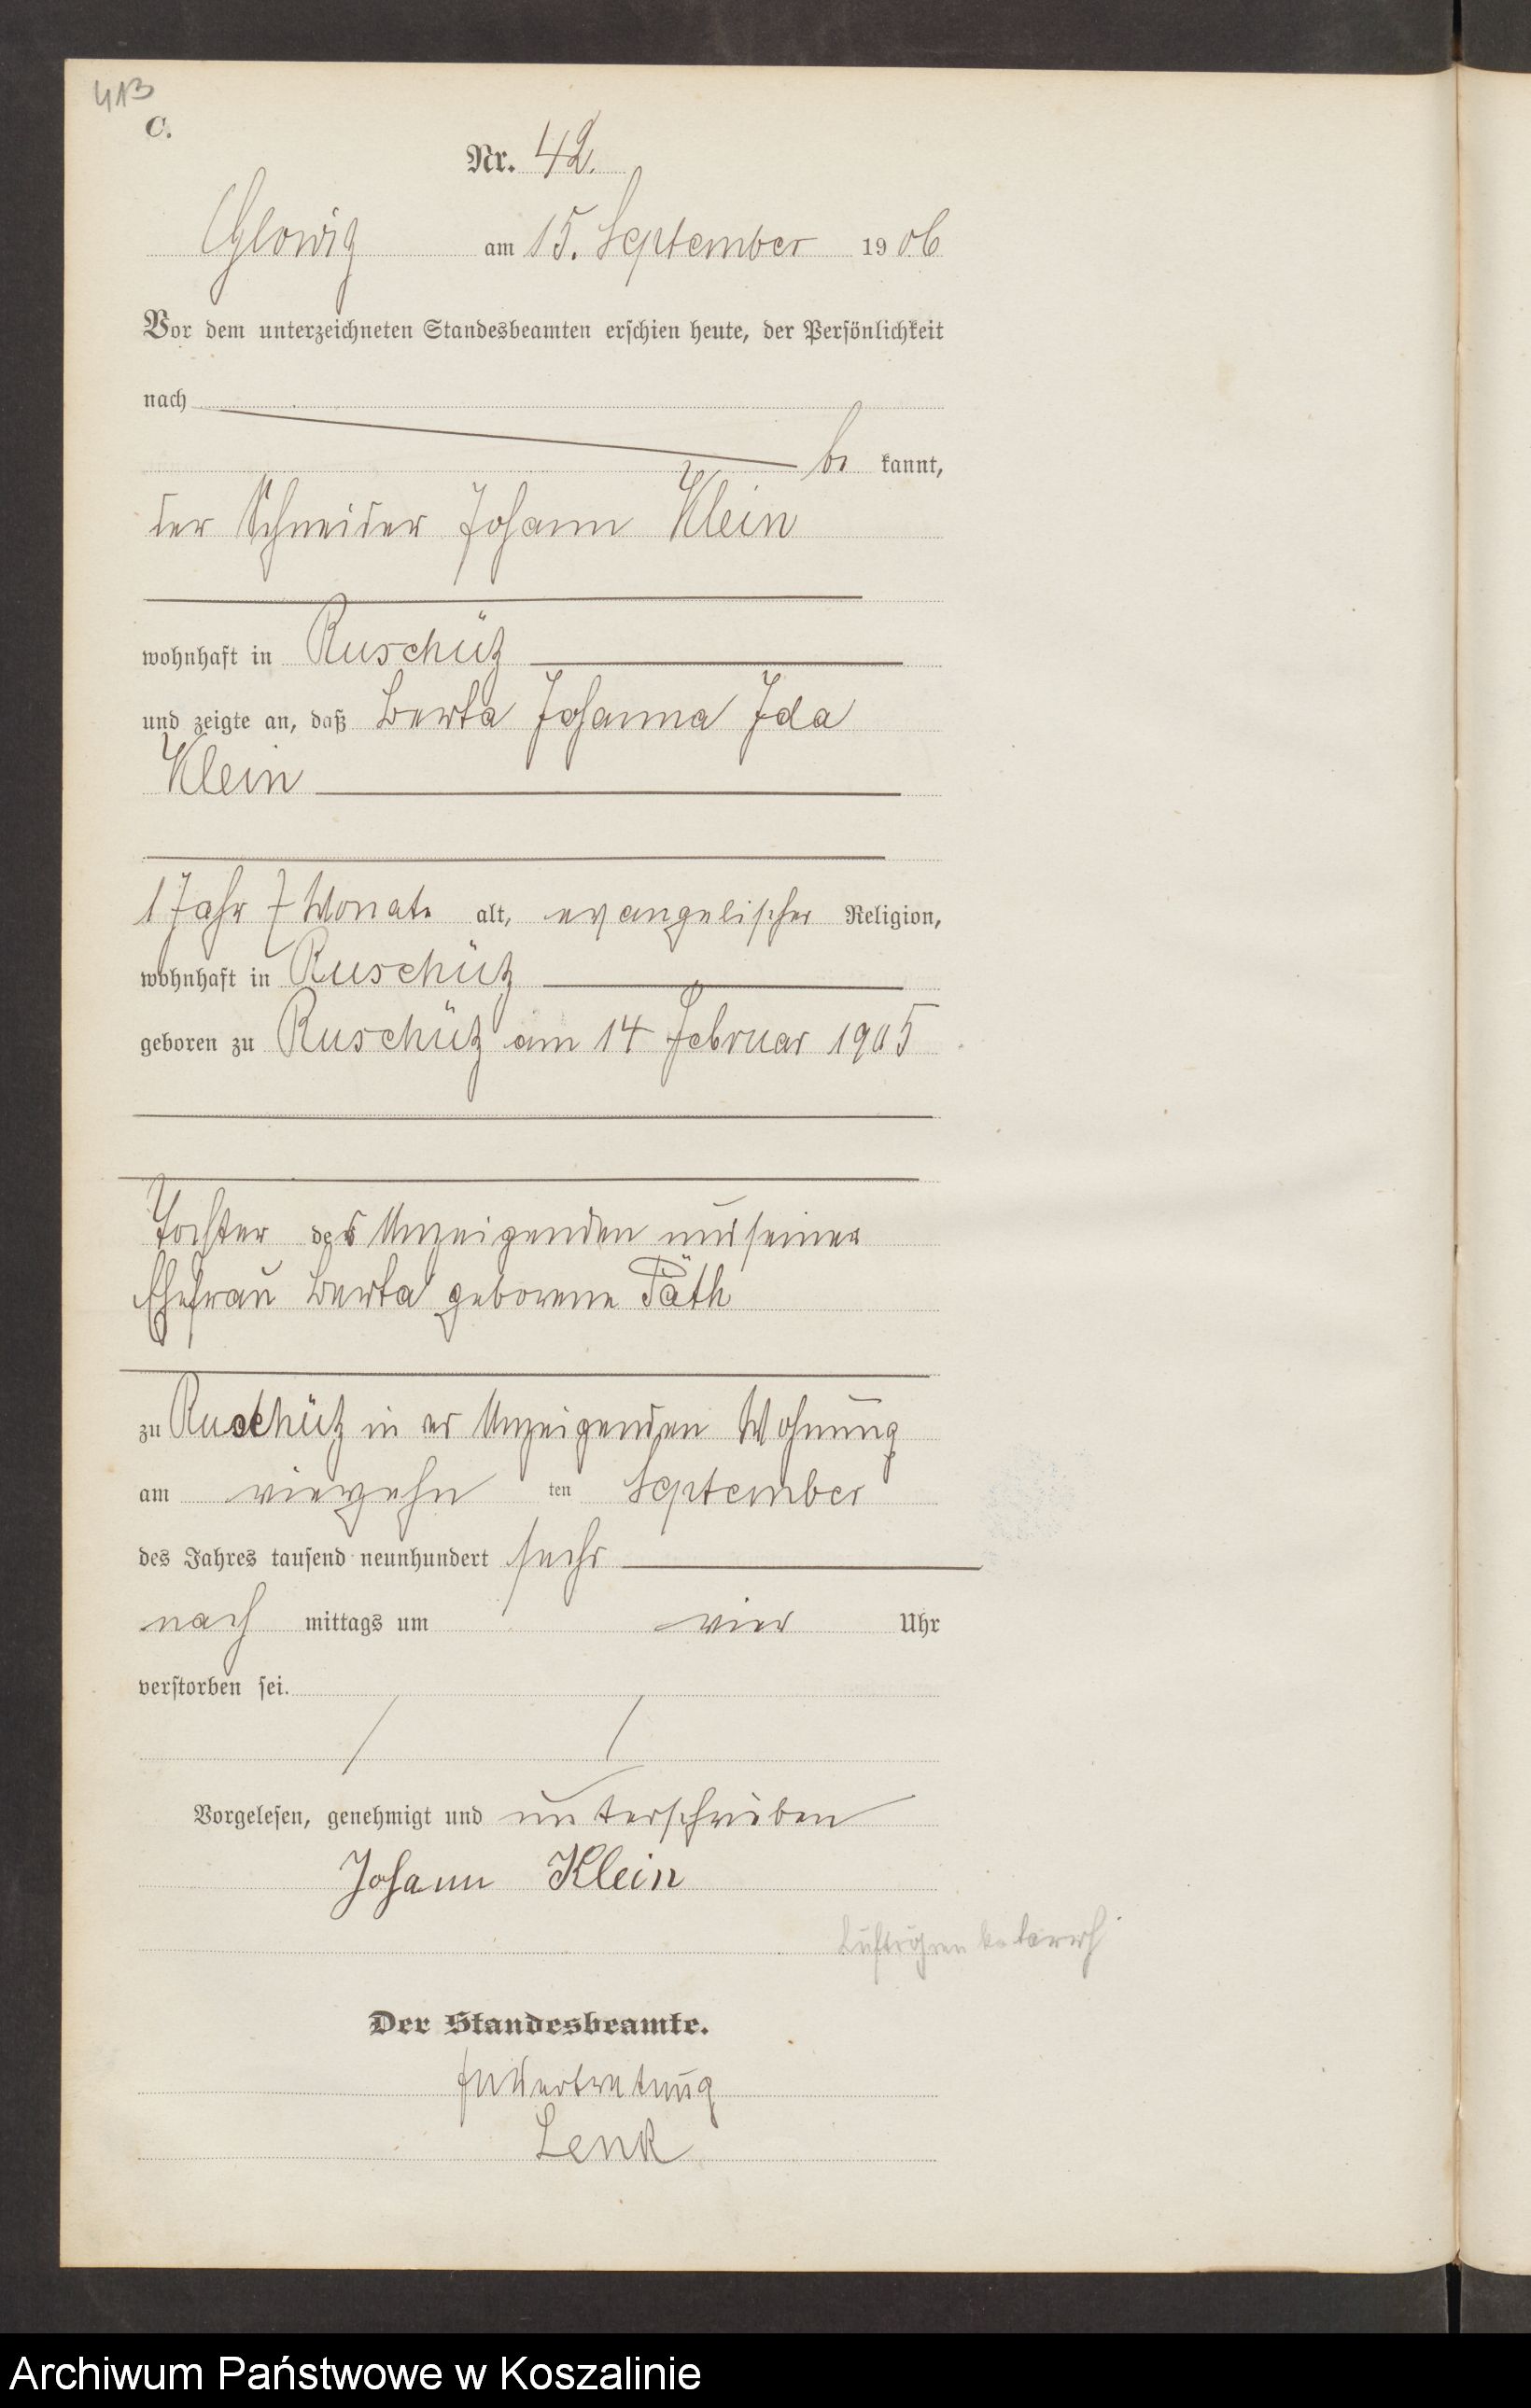 413
C.
Nr. 42.
Glowitz am 15. September 1906
Vor dem unterzeichneten Standesbeamten erschien heute, der Persönlichkeit
nach
be kannt,
der Schneider Johann Klein
wohnhaft in Ruschütz
und zeigte an, daß Berta Johanna Ida
Klein
1 Jahr 7 Monate alt, evangelischer Religion,
wohnhaft in Ruschütz
geboren zu Ruschütz am 14 Februar 1905
Tochter des Anzeigenden und seiner
Ehefrau Berta geborene Päth
zu Ruschütz in der Anzeigenden Wohnung
am vierzehn ten September
des Jahres tausend neunhundert sechs
nach mittags um vier Uhr
verstorben sei.
Vorgelesen, genehmigt und unterschrieben
Johann Klein
Luftröhren katarrh
Der Standesbeamte.
In Vertretung
Lenk
Archiwum Państwowe w Koszalinie